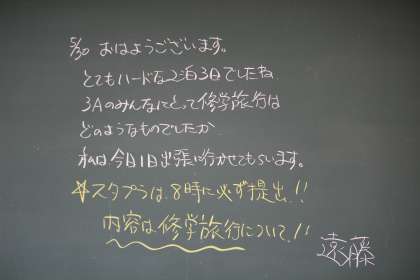 5/30 おはようございます。
とてもハードな2泊3日でしたね
3Aのみんなにとって修学旅行は
どのようなものでしたか
私は今日1日出張に行かせてもらいます。
☆スタプラは、8時に必ず提出!!
内容は修学旅行について!!
遠藤